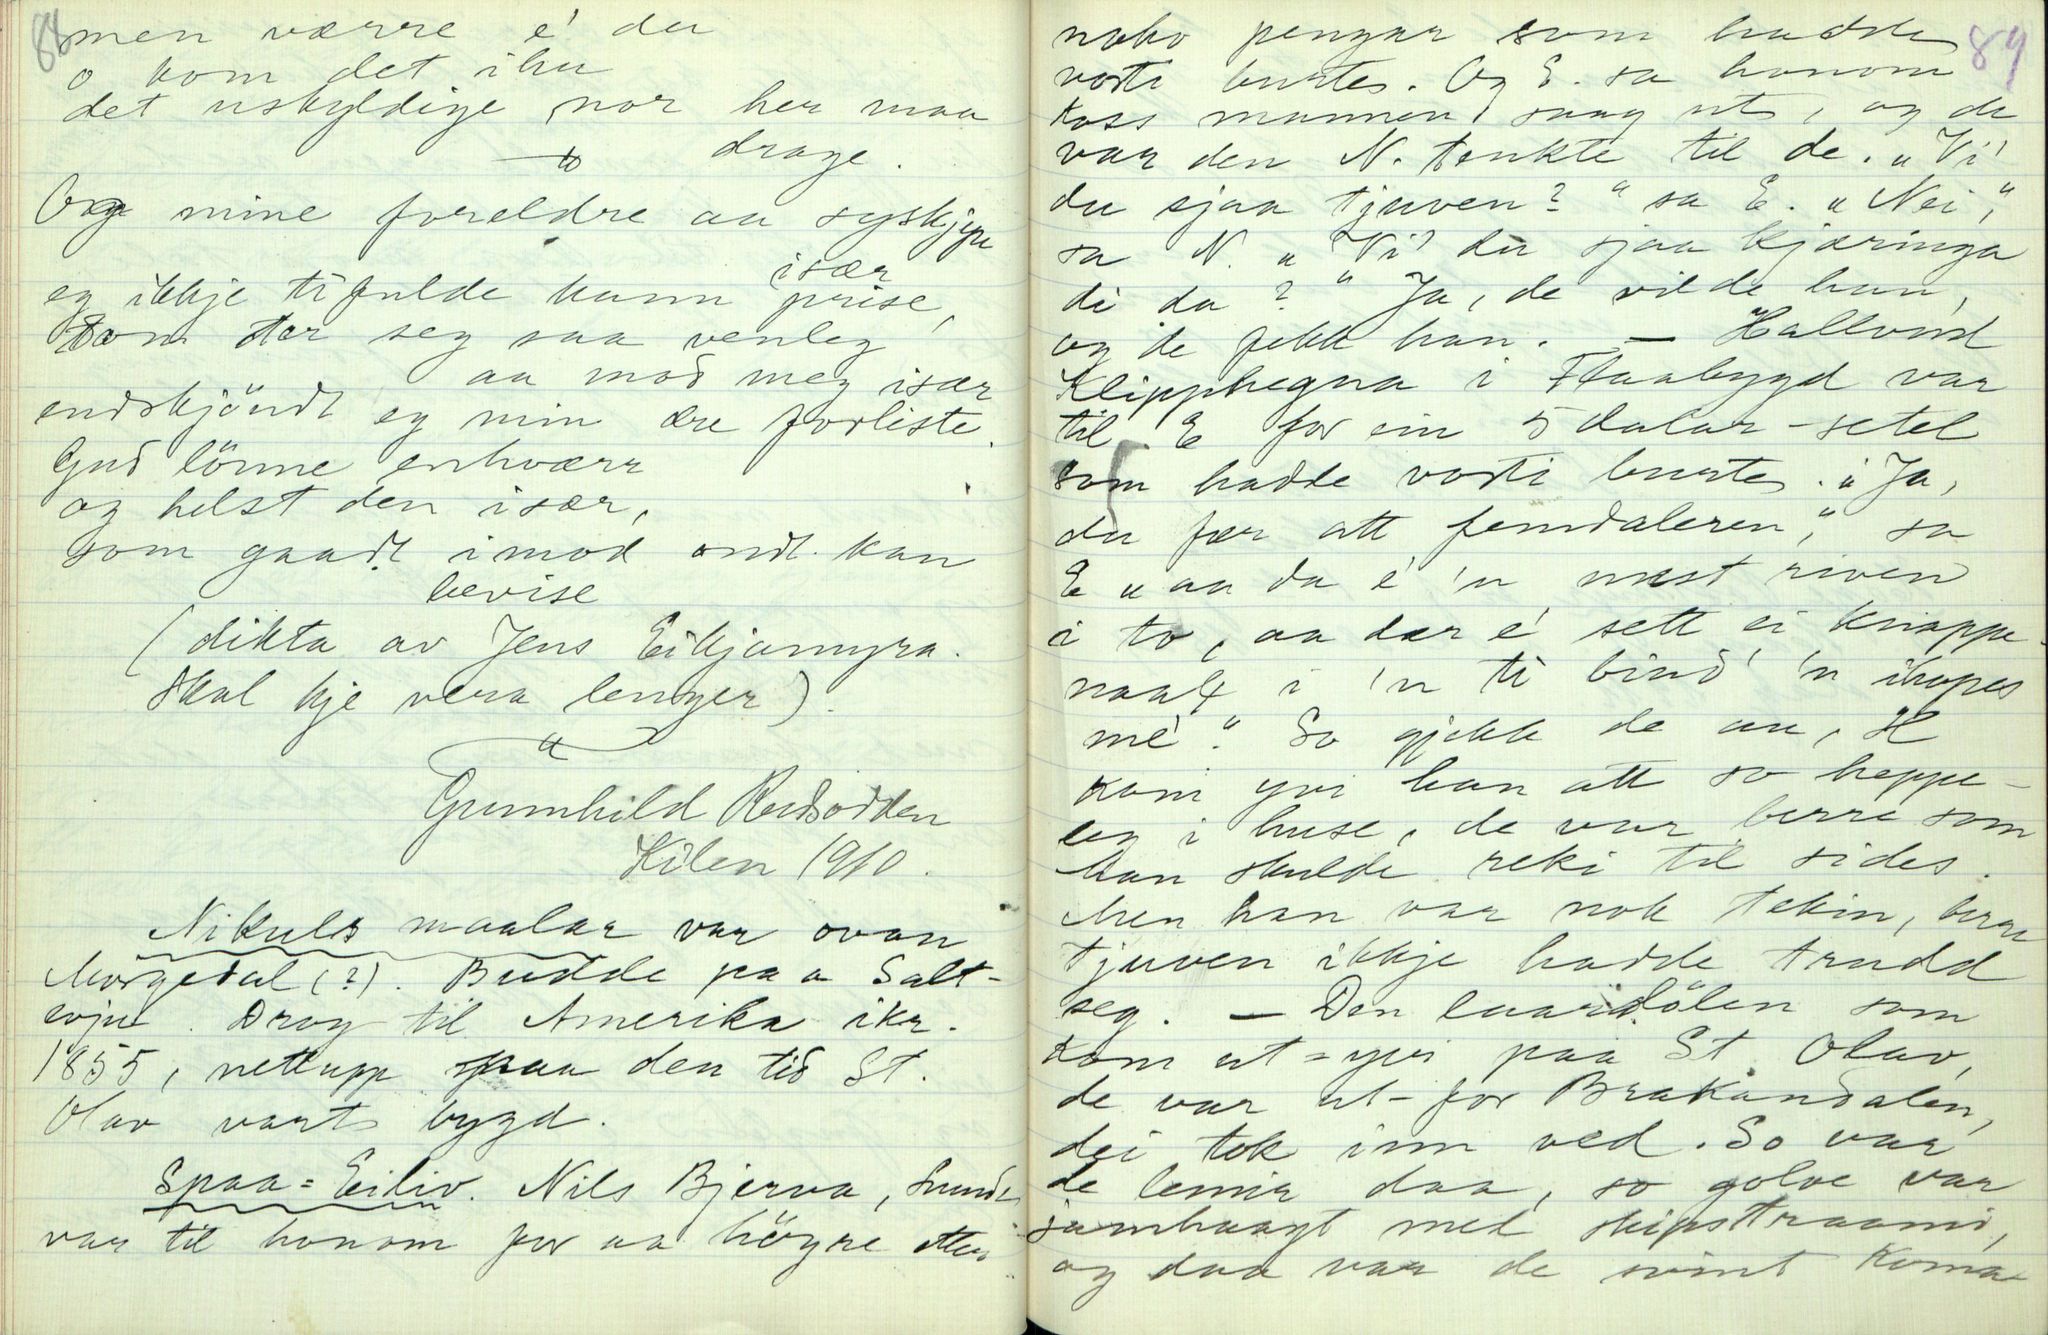 88
men værre é du
o kom det ihu
det uskyldige nor her maa
drage.
Og mine foreldre aa syskjen
især
eg ikkje tifulde kann prise,
som ter seg saa venleg
aa mod meg især
endskjöndt eg min ære forliste.
Gud lönne enhværr
og helst den især,
som gaadt imod ondt kan
bevise
(dikta av Jens Eikjamyra.
Skal kje vera lenger).
Gunnhild
Kilen 1910.
Nikuls maalar var ovan
Morgedal (?). Budde paa Salt-
evju. Drog til Amerika ikr.
1855, nettupp paa den tid St.
Olav vart bygd.
Spaa-Eiliv. Nils Bjerva,
var til honom for aa höyre etter
89
noko pengar som hadde
vorti burte. Og E. sa honom
koss mannen saag ut, og de
var den N. tenkte til de. „Vi'
du sjaa tjuven?" sa E. „Nei,"
sa N. „Vi' du sjaa kjæringa
di da?" Ja, de vilde han,
og de fekk han. — Hallvord
Klipphegna i Flaabygd var
til E for ein 5 dalar-setel
som hadde vorti burte. „Ja,
du fær att femdaleren," sa
E „aa da é 'n mest riven
i to, aa der é sett ei knappe-
naal i 'n ti bind' 'n ihopes
mé". So gjekk de au, H
kom yvi han att so heppe-
leg i huse, de var berre som
han skulde reki til sides.
Men han var nok tekin, berre
tjuven ikkje hadde trudd
seg. — Den laardölen som
kom ut-yvi paa St. Olav,
de var ut-for Brakandalen,
dei tok inn ved. So var
de lemir daa, so golve var
jamhaagt med skipstraami,
og daa var de svint koma